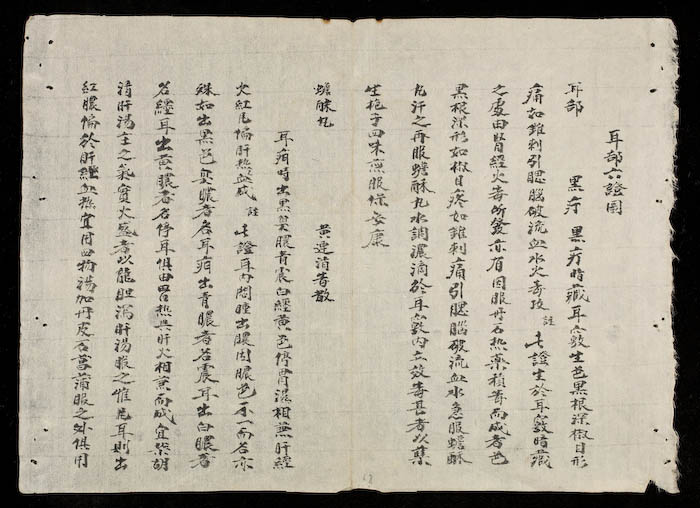 耳部六證圖
耳部　黑疔　黑疔暗藏耳竅生色黑根深椒目形
痛如錐刺引腮腦破流血水火毒攻註此證生於耳竅暗藏
之處由腎經火毒所發亦有因服丹石熱藥積毒而成者色
黑根深形如椒目疼如錐刺痛引腮腦破流血水急服蟾酥
丸汗之再服蟾酥丸水調濃滴於耳竅內立效毒甚者以
生梔子四味煎服保安康
蟾酥丸　黃連消毒散
耳疳時出黑臭膿青震白經黃色停胃濕相兼肝經
火紅風偏肝熱血成註此證耳內悶腫出膿因膿色不一而名亦
殊如出黑色臭膿者名耳疳出青膿者名震耳出白膿者
名纏耳出黃膿者名停耳俱由胃熱與肝火相兼而成宜柴胡
清肝湯主之氣實火盛者以龍胆瀉肝湯服之惟風耳則出
紅膿偏於肝經血熱宜用四物湯加丹皮石菖蒲服之外俱用